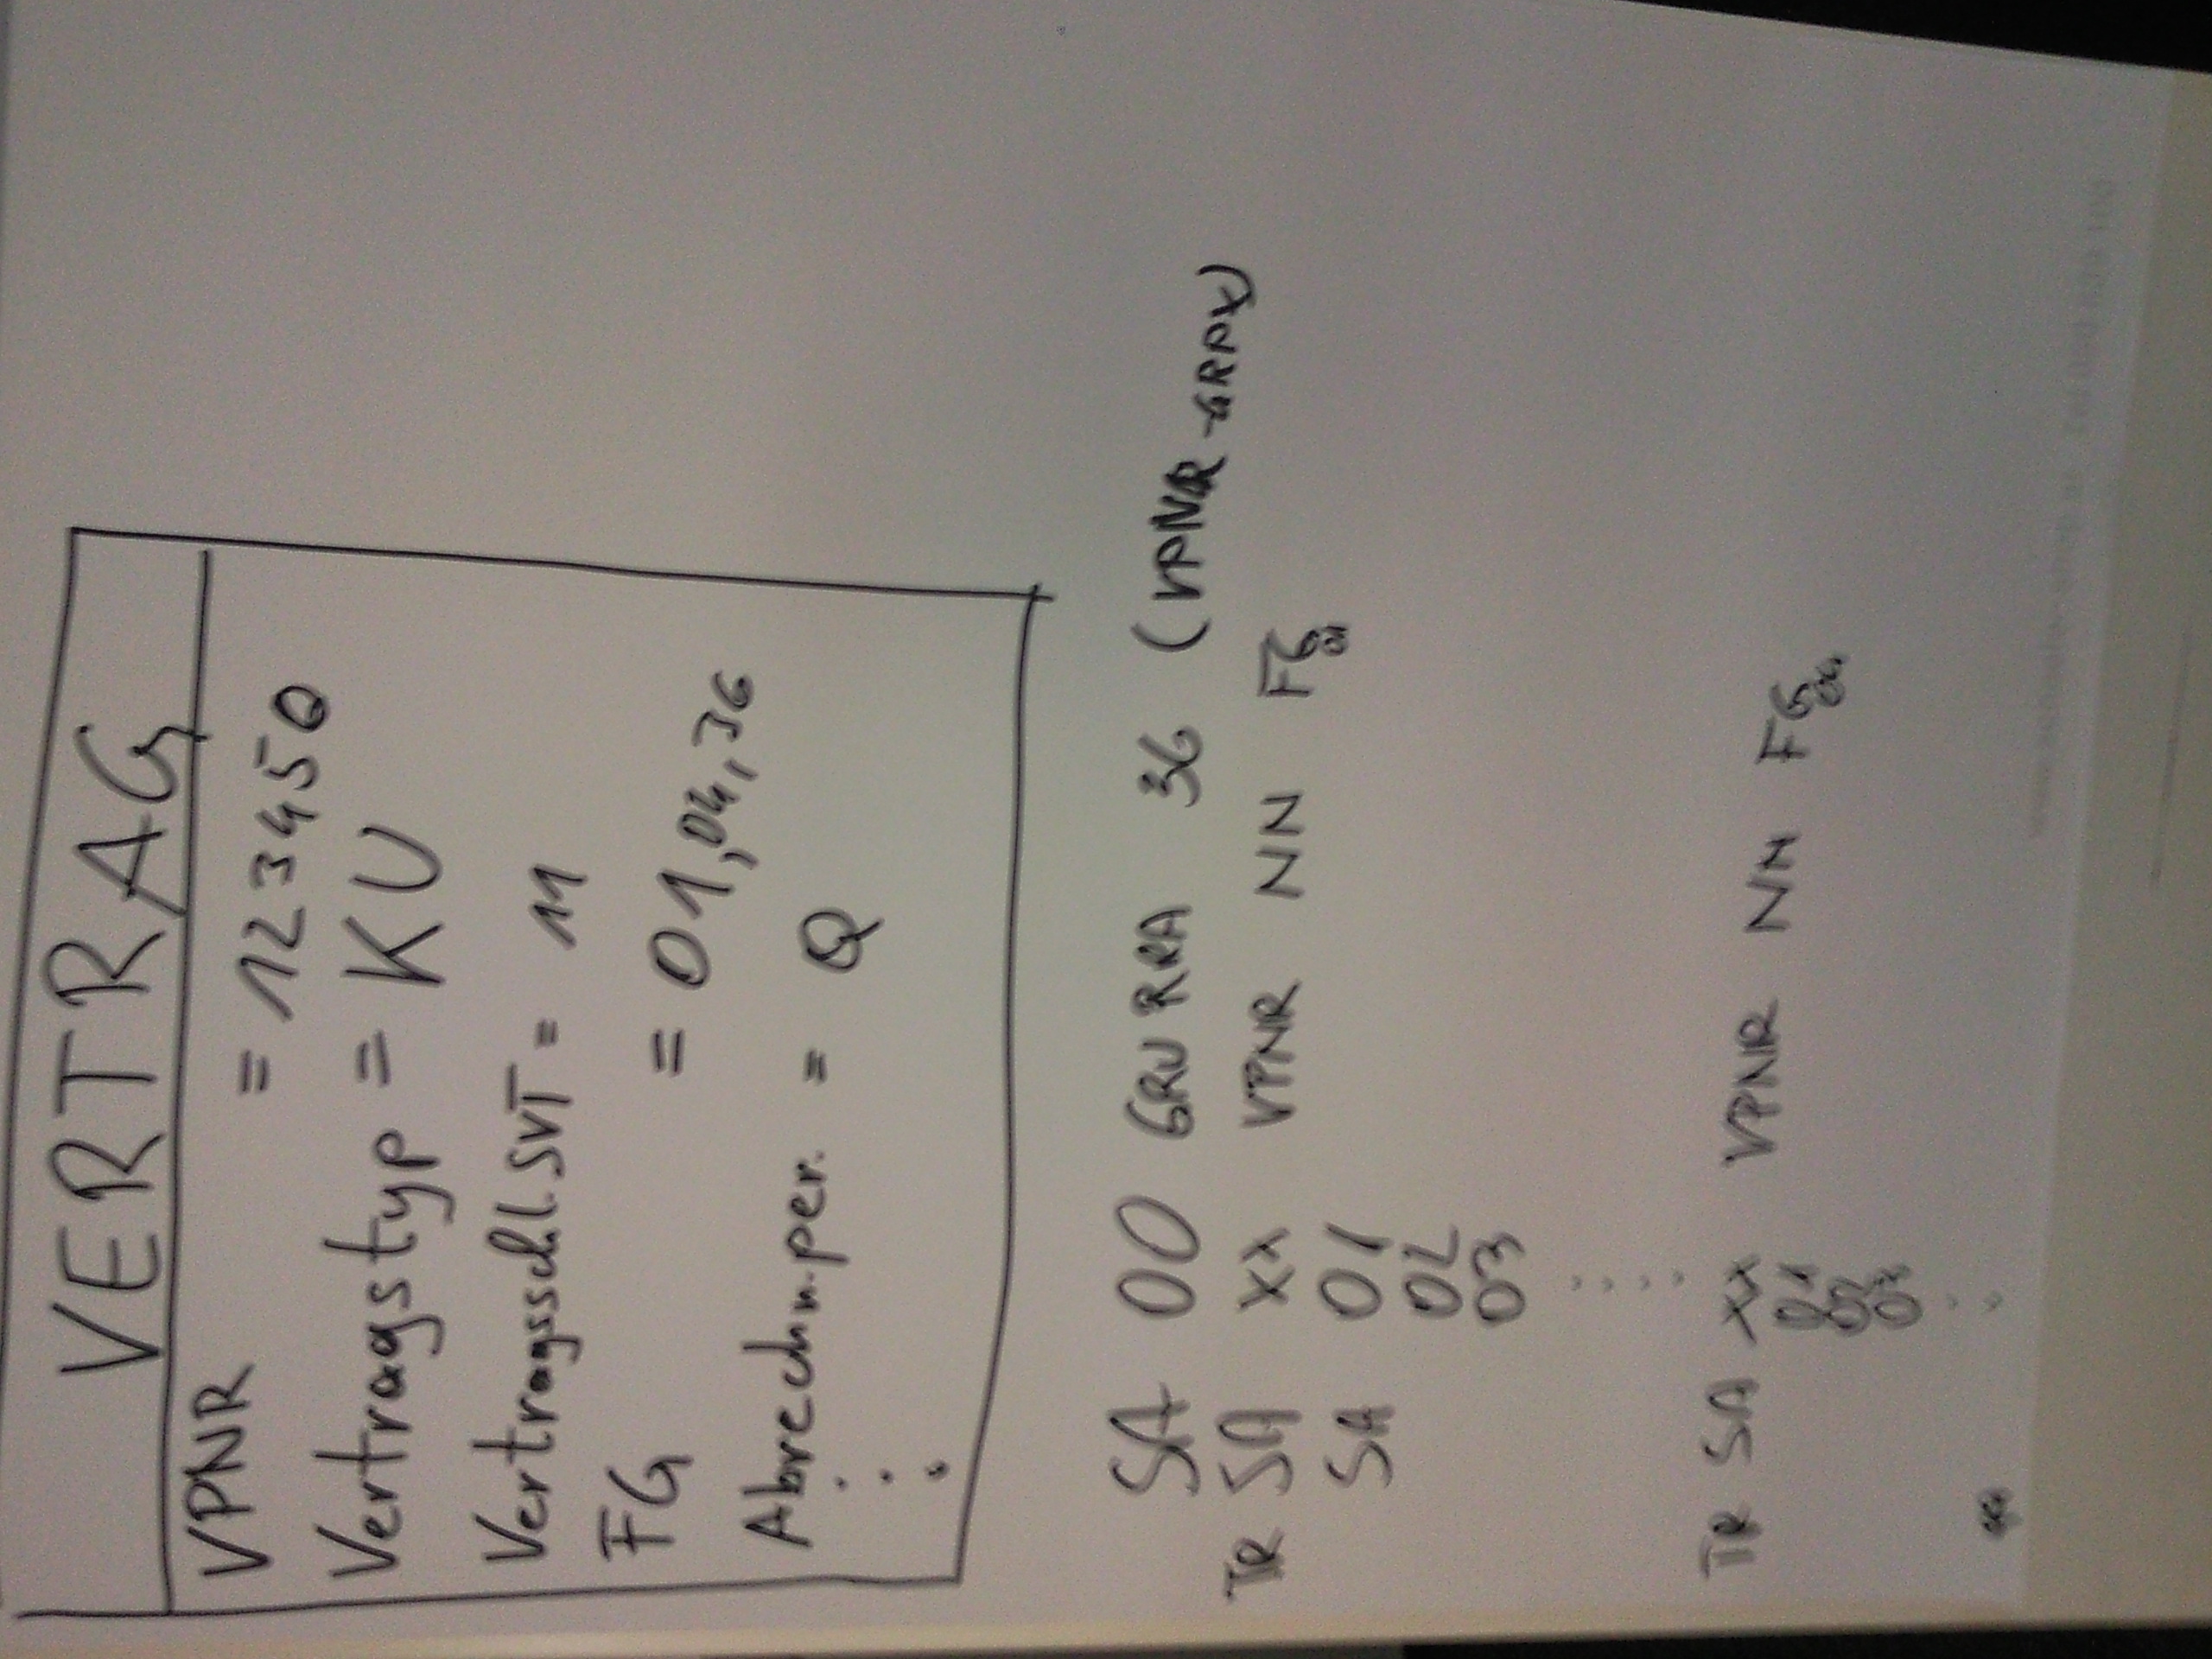 VERTRAG
VPNR = 123450
Vertragstyp = KU
Vertragsschl. SVT = 11
FG = 01,04,36
Abrechn.per. = Q
SA 00 GRU RRA 36 (VPNR-GRPX)
TR SA XX VPNR NN FG 01
SA 01
02
03
TR SA XX VPNR NN FG
01
02
03